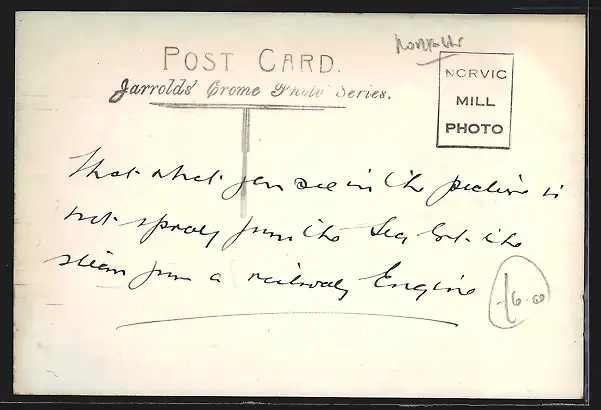 Norfolk
POST CARD.
Jarrolds' Crome Photo Series.
NORVIC
MILL
PHOTO
that what you see in the picture is
not spray from the Sea but the
steam from a railway Engine
£6.00